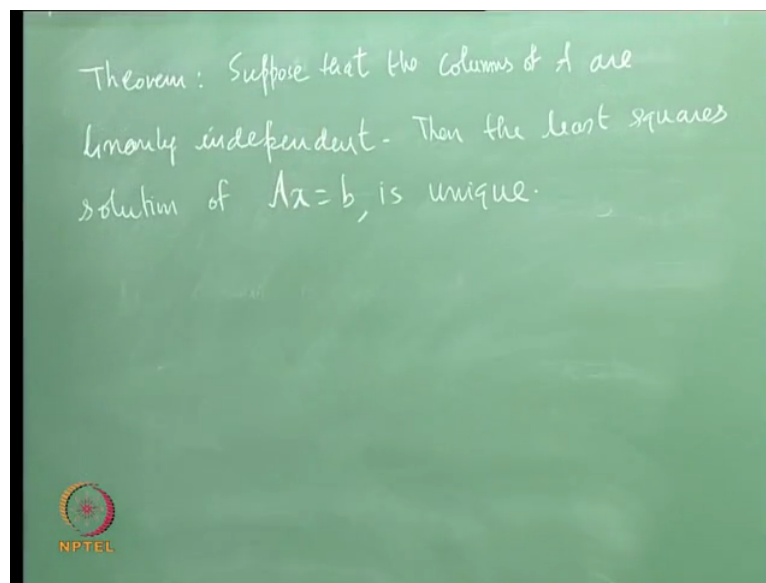 Theorem: Suppose that the columns of A are
linearly independent. Then the least squares
solution of Ax = b, is unique.
NPTEL